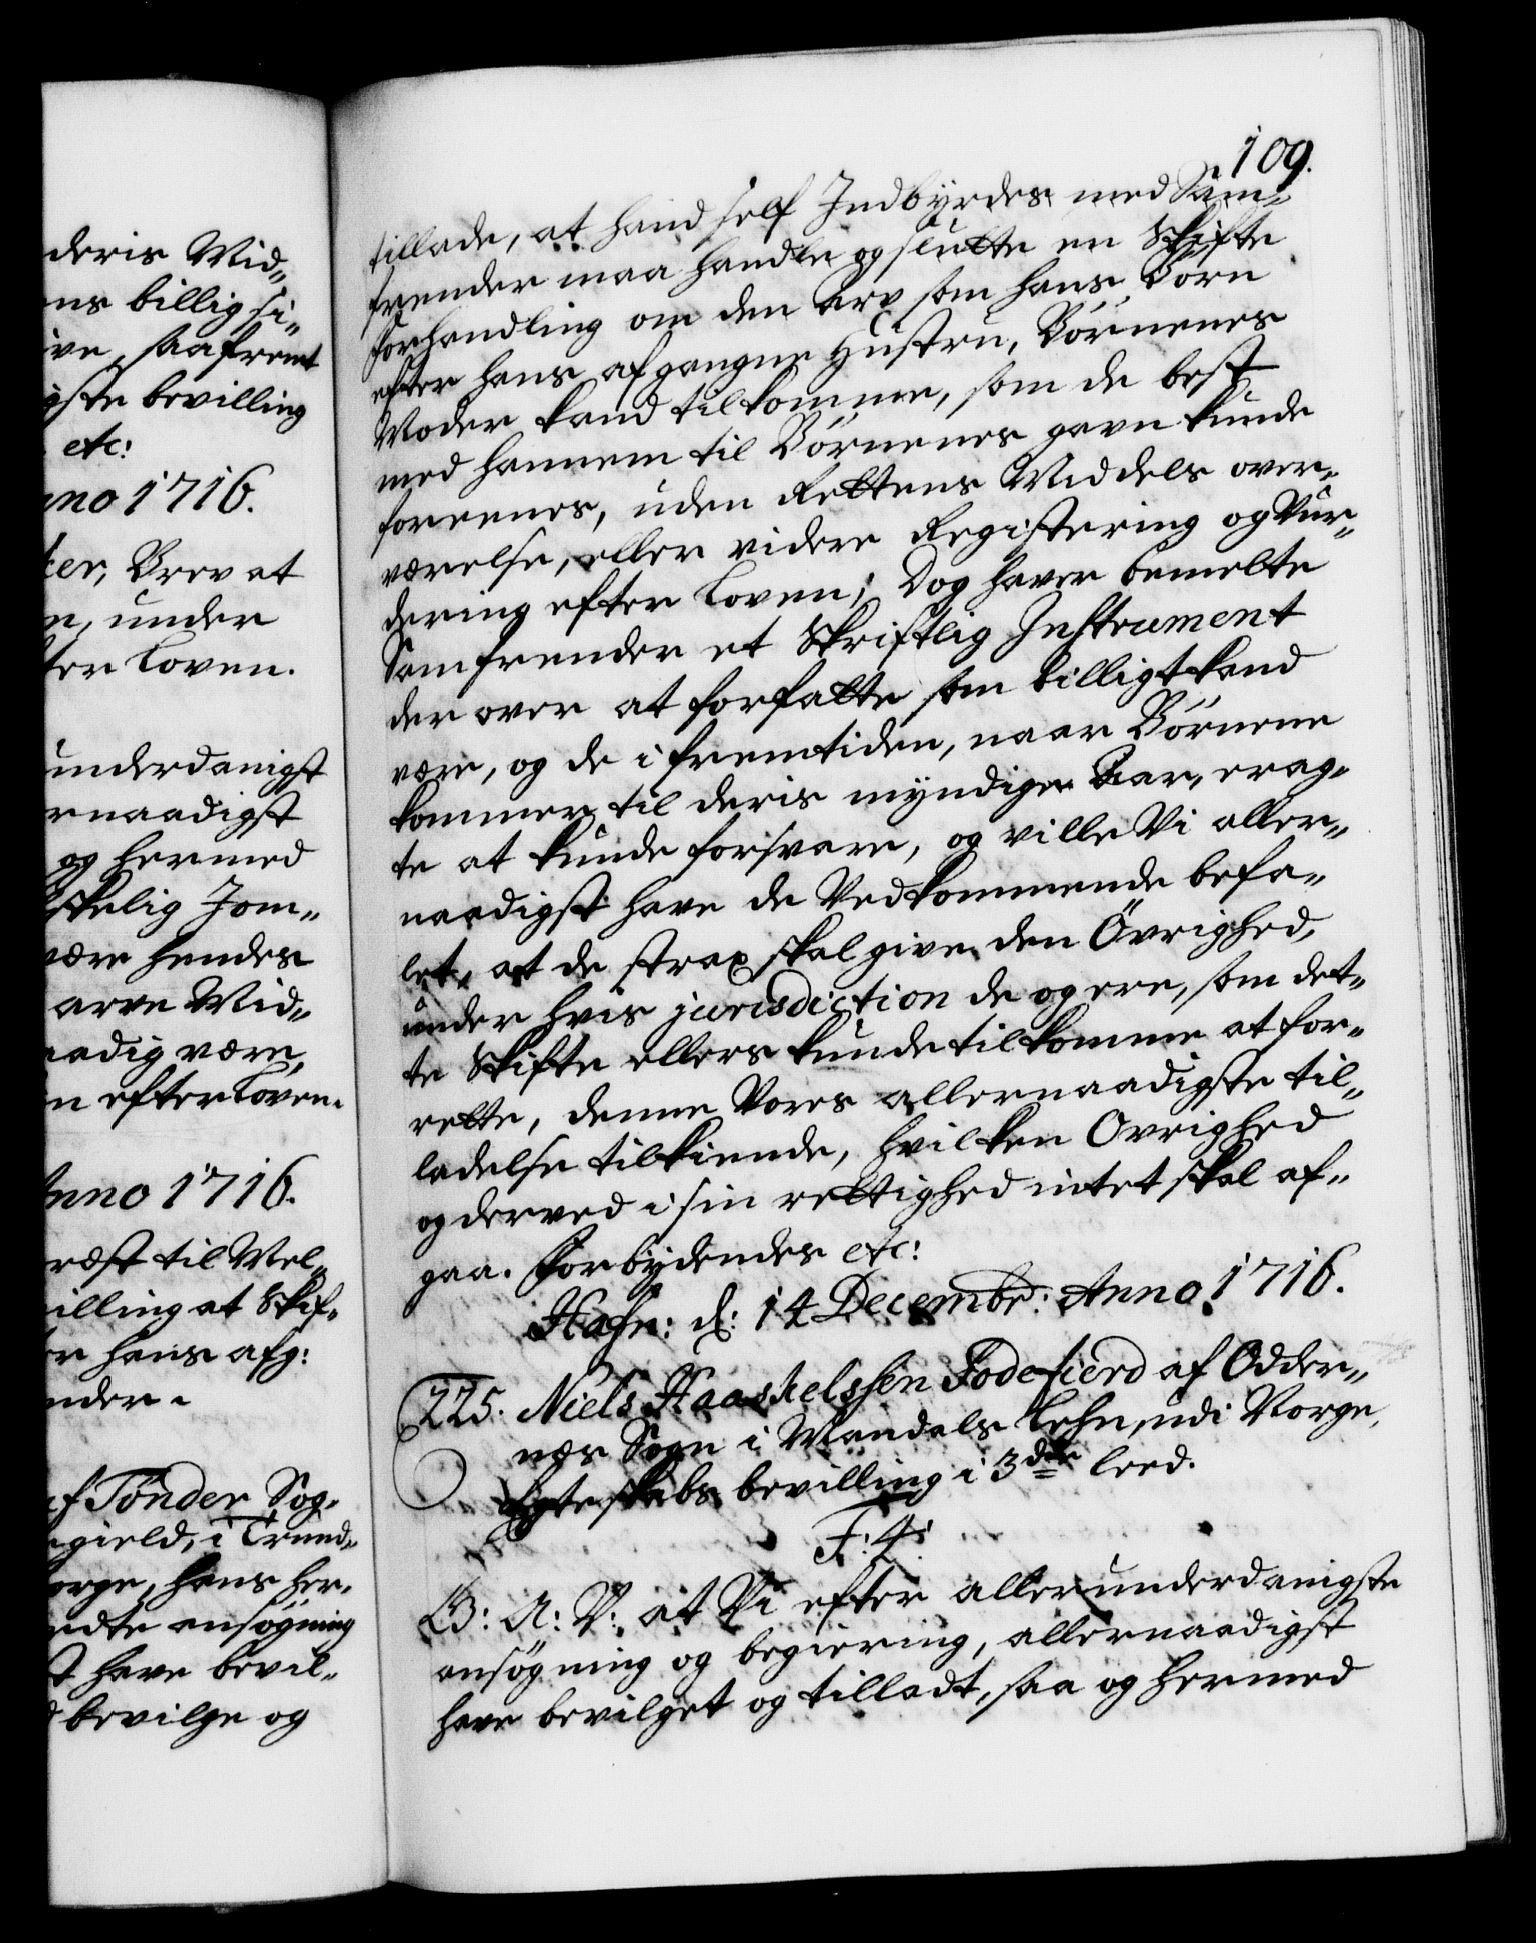 deris Mid„
ns billig si„
ive, saafremt
igste bevilling
etc:
nno 1716.
ker, Brev at
n, under
ter Loven.
underdanigst
rnaadigst
og hermed
skelig Jom„
være hendes
arve Mid„
aadig være,
n efter Loven.
Anno 1716.
ræst til Mel„
villing at Skif„
er hans afg:
nder.
af Tønder Sog„
egield, i Trund„
orge, hans her„
edte ansøgning
st have bevil„
d bevilge og
109.
tillade, at hand self Indbyrdes med Sam„
frender maa handle og slutte en Skifte
Forhandling om den Arv som hans Børn
efter hans afgangne Hustru, Børnenes
Moder kand tilkomme, som de best
med hannem til Børnenes gavn kunde
foreenes, uden Rettens Middels over„
værelse, eller videre Registering og Vur„
dering efter Loven; Dog haver bemelte
Samfrender et Skriftlig Instrument
der over at forfatte som billigt kand
være, og de i fremtiden, naar Børnene
kommer til deris myndige Aar, erag„
te at kunde forsvare, og ville Vi aller„
naadigst have de Vedkommende befa„
let, at de strax skal give den Övrighed,
under hvis jurisdiction de og ere, som det„
te Skifte ellers kunde tilkomme at for„
rette, denne Vores allernaadigste til„
ladelse tilkiende, hvilken Ovrighed
og derved i sin rettighed intet skal af„
gaa. Forbydendes etc:
Hafn: d: 14 Decembr: Anno 1716.
225. Niels Haaskelssen Fodefierd af Odder„
næs Sogn i Mandals Lehn, udi Norge,
Egteskabs bevilling i 3die Leed.
F: 4:
G: A: V: at Vi efter allerunderdanigste
ansøgning og begiering, allernaadigst
have bevilget og tilladt, saa og hermed